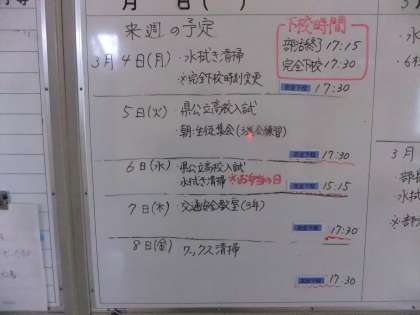 月 日( )
来週の予定
下校時間
部活終了 17:15
完全下校 17:30
3月4日(月)・水拭き清掃
※完全下校時刻変更
完全下校 17:30
5日(火)・県公立高校入試
・朝:生徒集会(3送会練習)
完全下校 17:30
6日(水)・県公立高校入試
水拭き清掃 ※お弁当の日
完全下校 15:15
7日(木)・交通安全教室(3年)
完全下校 17:30
8日(金)・ワックス清掃
完全下校 17:30
3月